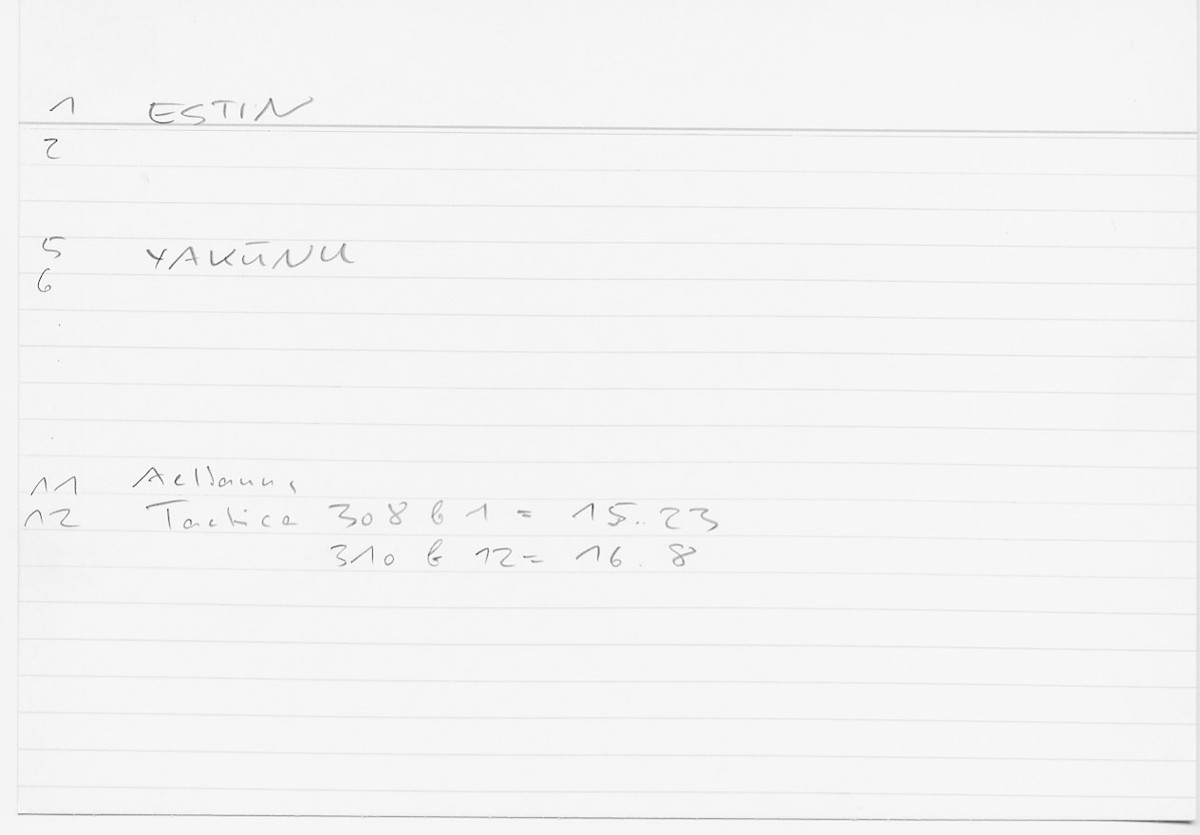 1 ESTIN
2
5 YAKŪNU
6
11 Aelianus
12 Tactica 308 b 1 = 15.23
310 b 12 = 16.8